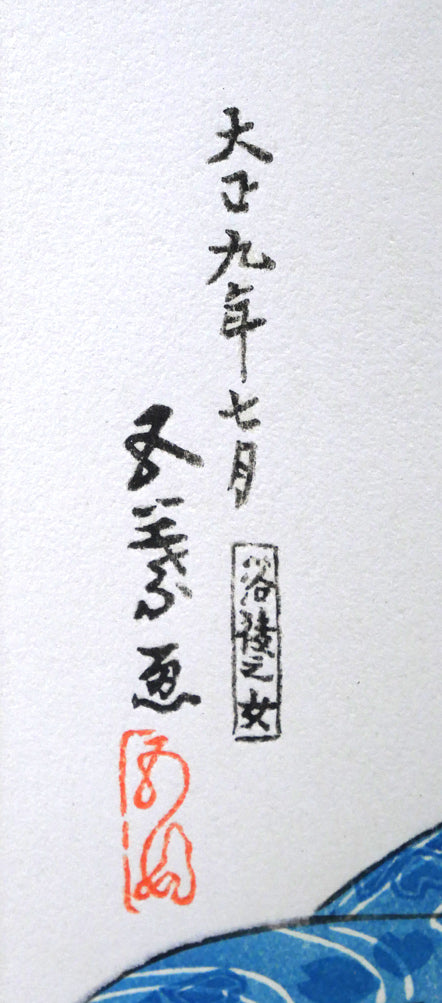 大正九年七月
浴後之女
五葉画